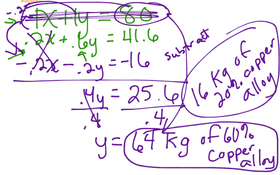 -.2
1x + 1y = 80
.2x + .6y = 41.6
-.2x - .2y = -16
subtract
.4y = 25.6
.4 .4
y = 64 Kg of 60% copper alloy
16 Kg of
20% copper
alloy